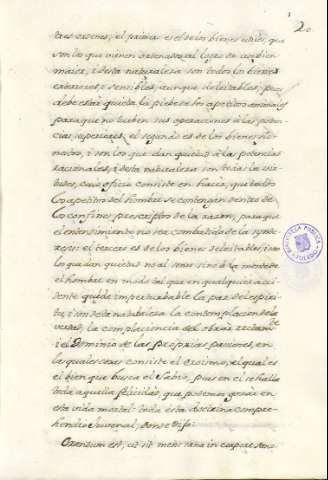 2
tres ordenes, el primero es el de los bienes utiles, que
son los que vienen
i desta naturaleza son todos los bienes
exteriores, e sensibles, aunque deleitables; pues
debe estar quieta la plebe de los apetitos
para que no turben sus operaciones à las poten-
cias superiores; el segundo es de los bienes ho-
nestos, i son los que dan quietud à las potencias
racionales, i desta naturaleza son todas las vir-
tudes, cuio oficio consiste en hacer, que todos
los apetitos del hombre se contengan dentro de
los confines prescriptos de la razon, para que
el entendimiento no sea combatido de la
el tercero es de los bienes deleitables, i son
los que dan quietud no al sentido sino à la mente de
el hombre en modo tal que en qualquier acci-
dente quede imperturbable la paz del espiri-
tu, i son desta naturaleza la contemplacion de la
verdad, la complacencia del obrar rectamte
i el Dominio de las proprias pasiones, en
las quales consiste el el qual es
el bien que busca el Sabio, pues en el se halla
toda aquella felicidad, que podemos gozar en
esta vida mortal: toda esta doctrina compre-
hendiò Juvenal, donde dijo:
Orandum est, ut sit mens sana in corpore sano
BIBLIOTECA PUBLICA
TOLEDO